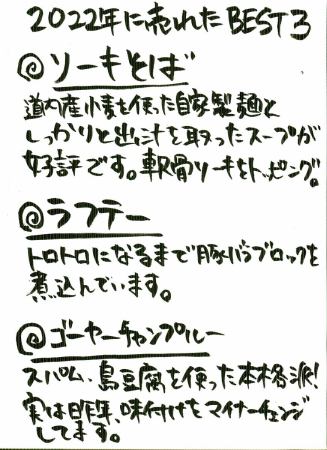 2022年に売れたBEST3
◎ソーキそば
道内産小麦を使った自家製麺と
しっかりと出汁を取ったスープが
好評です。軟骨ソーキをトッピング。
◎ラフテー
トロトロになるまで豚バラブロックを
煮込んでいます。
◎ゴーヤーチャンプルー
スパム、島豆腐を使った本格派!
実は昨年、味付けをマイナーチェンジ
してます。